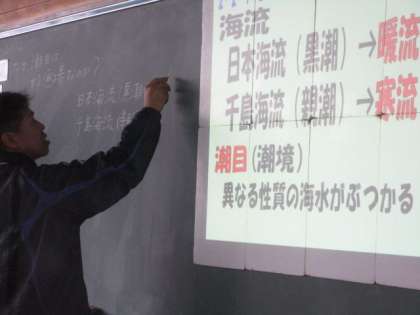 なぜ、潮目は
日本海流(黒潮
千島海流(親
海流
日本海流（黒潮）→暖流
千島海流（親潮）→寒流
潮目（潮境）
異なる性質の海水がぶつかる